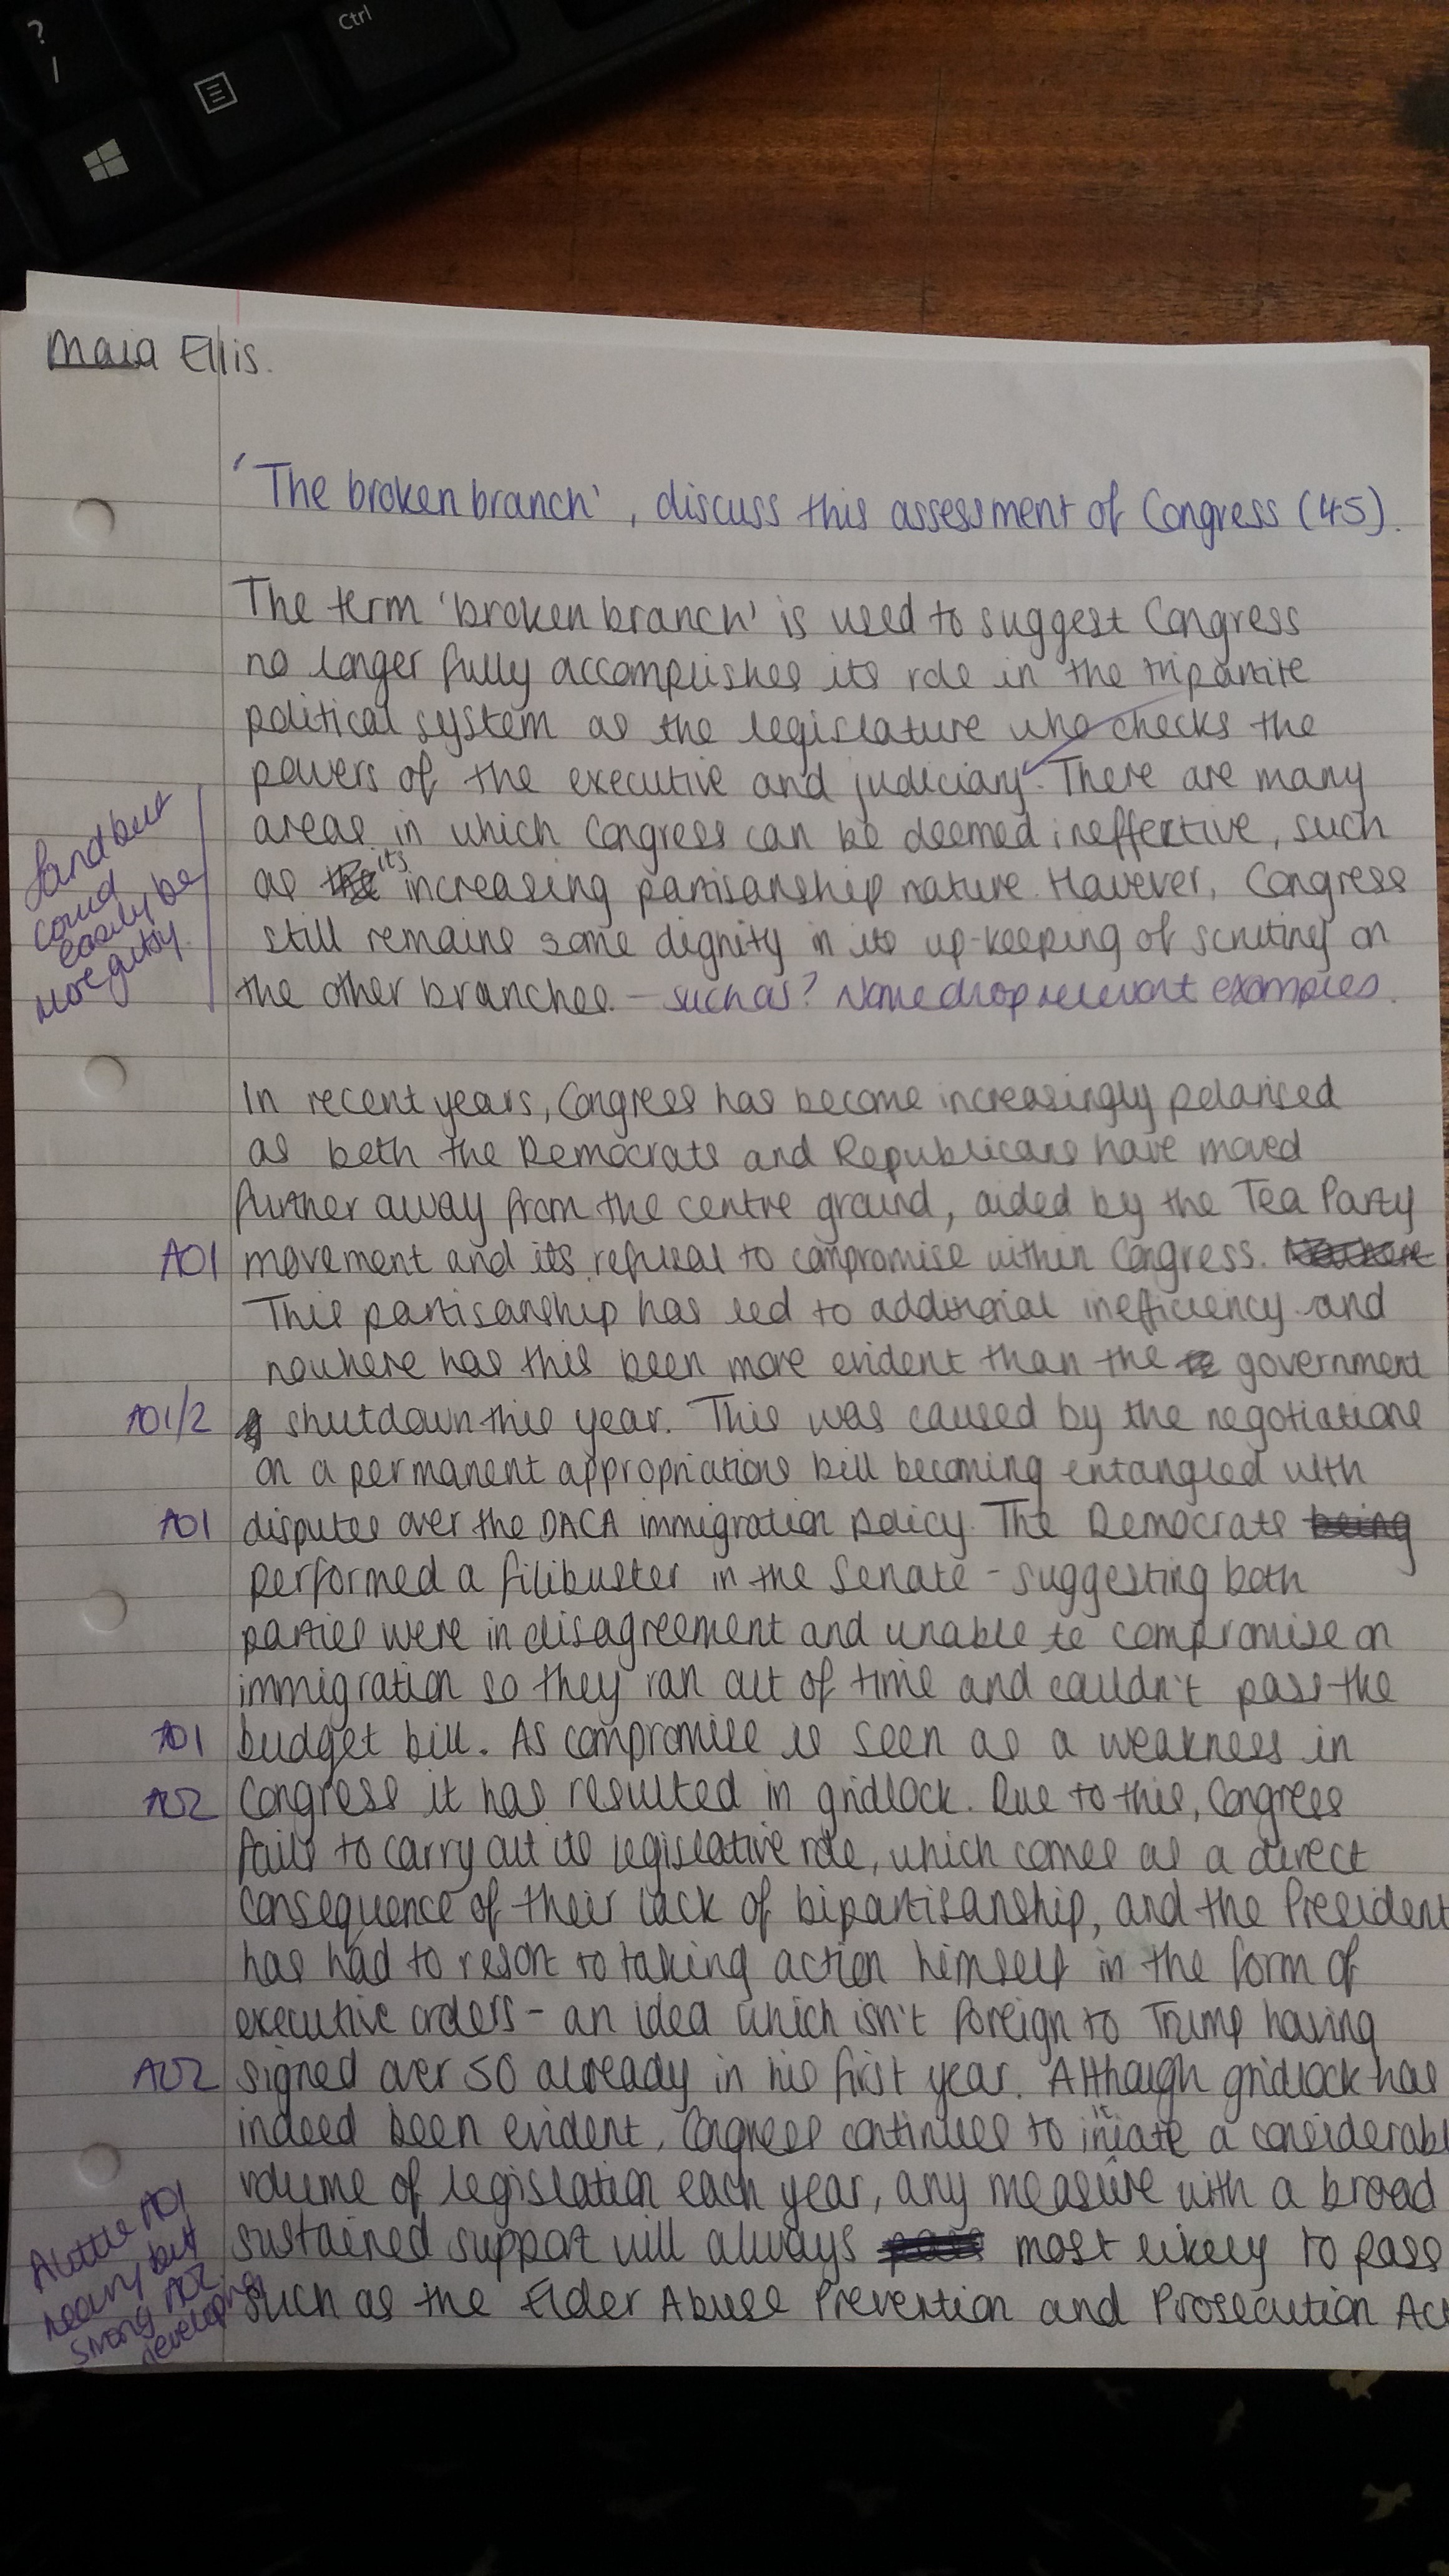 ?
/
Ctrl
Maia Ellis.
'The broken branch', discuss this assessment of Congress (45).
The term 'broken branch' is used to suggest Congress
no longer fully accomplishes its role in the tripartite
political system as the legislature who checks the
powers of the executive and judiciary. There are many
areas in which Congress can be deemed ineffective, such
as the its increasing partisanship nature. However, Congress
still remains some dignity in its up-keeping of scrutiny on
the other branches. - such as? Name drop relevant examples.
Sound but
could
easily be
more gutsy.
In recent years, Congress has become increasingly polarised
as both the Democrats and Republicans have moved
further away from the centre ground, aided by the Tea Party
AO1 movement and its refusal to compromise within Congress.
This partisanship has led to additional inefficiency and
nowhere has this been more evident than the government
AO1/2 shutdown this year. This was caused by the negotiations
on a permanent appropriations bill becoming entangled with
AO1 disputes over the DACA immigration policy. The Democrats being
performed a filibuster in the Senate - suggesting both
parties were in disagreement and unable to compromise on
immigration so they ran out of time and couldn't pass the
AO1 budget bill. As compromise is seen as a weakness in
AO2 Congress it has resulted in gridlock. Due to this, Congress
fails to carry out its legislative role, which comes as a direct
consequence of their lack of bipartisanship, and the President
has had to resort to taking action himself in the form of
executive orders - an idea which isn't foreign to Trump having
AO2 signed over 50 already in his first year. Although gridlock has
indeed been evident, Congress continues to initiate a considerabl
volume of legislation each year, any measure with a broad
sustained support will always pass most likely to pass
such as the Elder Abuse Prevention and Prosecution Act
A little AO1
heavy but
strong AO2
developing